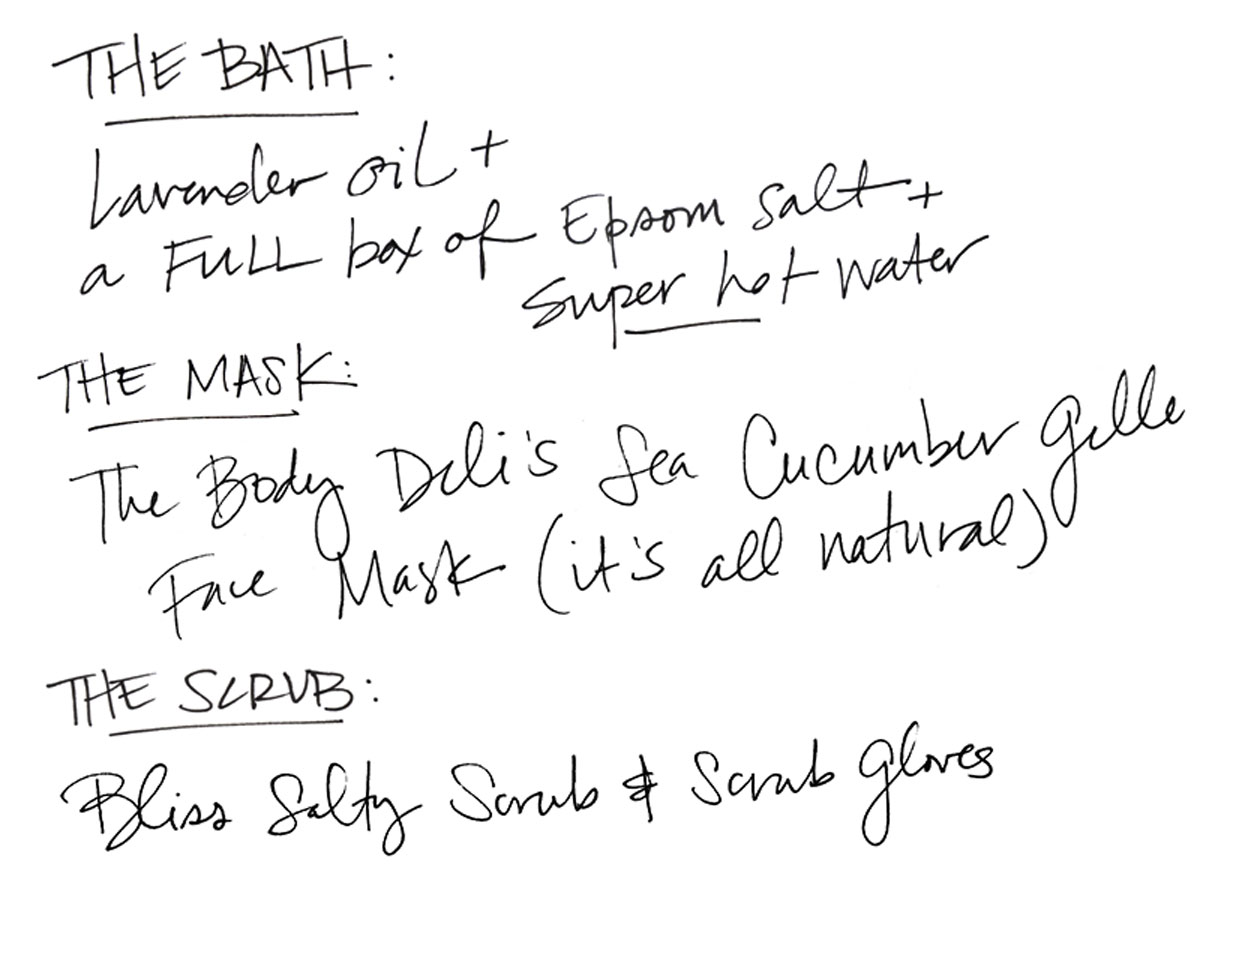 THE BATH:
Lavender oil +
a FULL box of Epsom salt +
Super hot water
THE MASK:
The Body Deli's Sea Cucumber Gelle
Face Mask (it's all natural)
THE SCRUB:
Bliss Salty Scrub & Scrub gloves